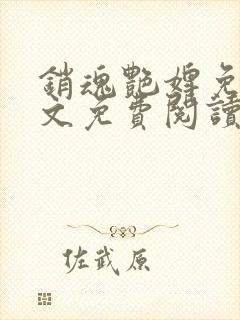 銷魂艷婢免
文免費閱讀
佐武原